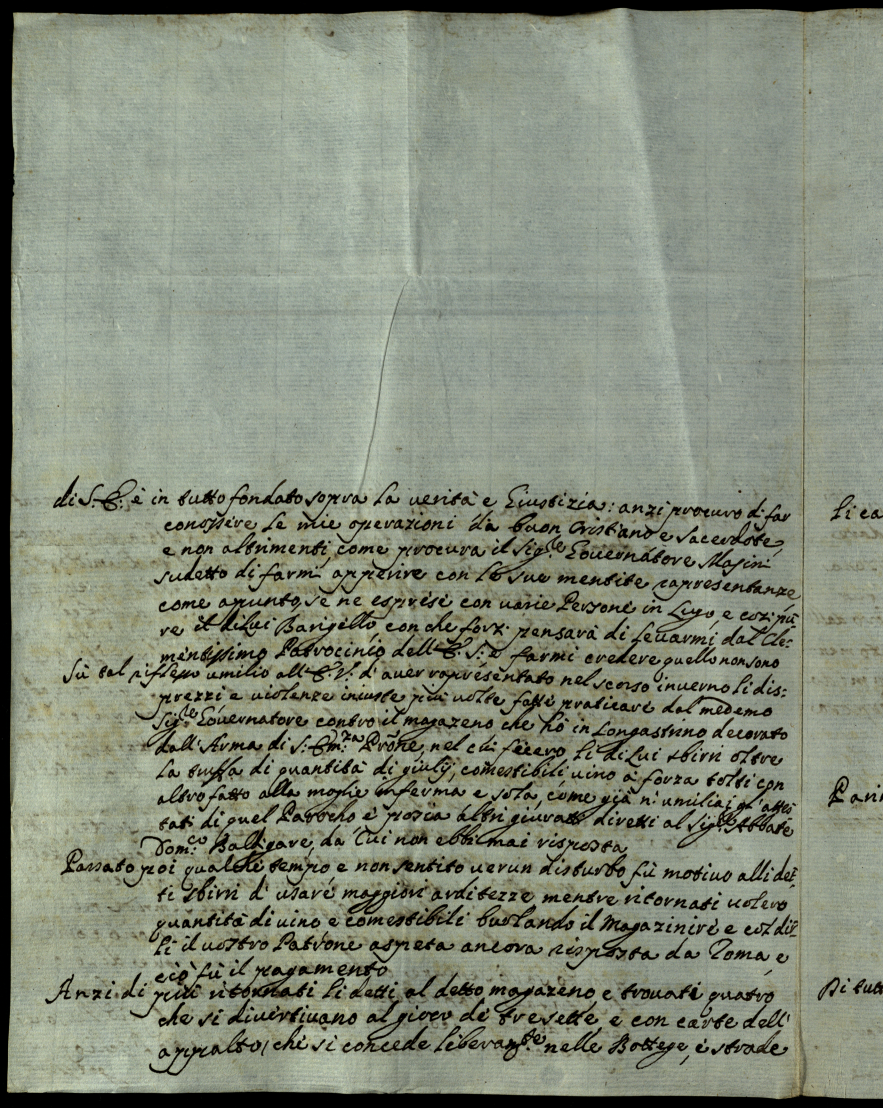 di S. E. è in tutto fondato sopra la verità e Giustizia: anzi procuro di far
conoscere le mie operazioni da buon Cristiano e Sacerdote,
e non altrimenti, come procura il Sig.re Governatore Masini
sudetto di farmi apperire con le sue mentite rapresentanze
come apunto, se ne espresse con varie Persone in Lugo, e cozi pu-
re il di lui Barigello con che forzi pensarà di levarmi dal Cle:
mentissimo Patrocinio dell'E. S. e farmi credere quello non sono
Sù tal riflesso umilio all'E. V. d'aver rapresentato nel scorso inverno li dis:
prezzi e violenze iniuste più volte fatte praticare dal medemo
Sig.re Governatore contro il magazeno che hò in Longastrino decorato
dall'Arma di S. Em.za Prone, nel cui fecero li di lui sbirri oltre
la truffa di quantità di giulij, comestibili vino à forza tolti con
altro fatto alla moglie inferma e sola, come già n'umiliai gl'attes
tati di quel Parocho e poscia altri giurati diretti al Sig.re Abbate
Dom.co Baldigare, da cui non ebbi mai risposta
Passato poi qualche tempo e non sentito verun disturbo fù motivo alli det-
ti sbirri d'usare maggiori arditezze mentre ritornati volero
quantità di vino e comestibili burlando il Magazinire e col dir-
li il vostro Patrone aspeta ancora risposta da Roma, e
ciò fù il pagamento
Anzi di più ritornati li detti al detto magazeno e trovati quatro
che si divertivano al gioco de tresette, e con carte dell'
appalto, che si concede liberam.te nelle Bottege, e strade
li ca
Di tutt